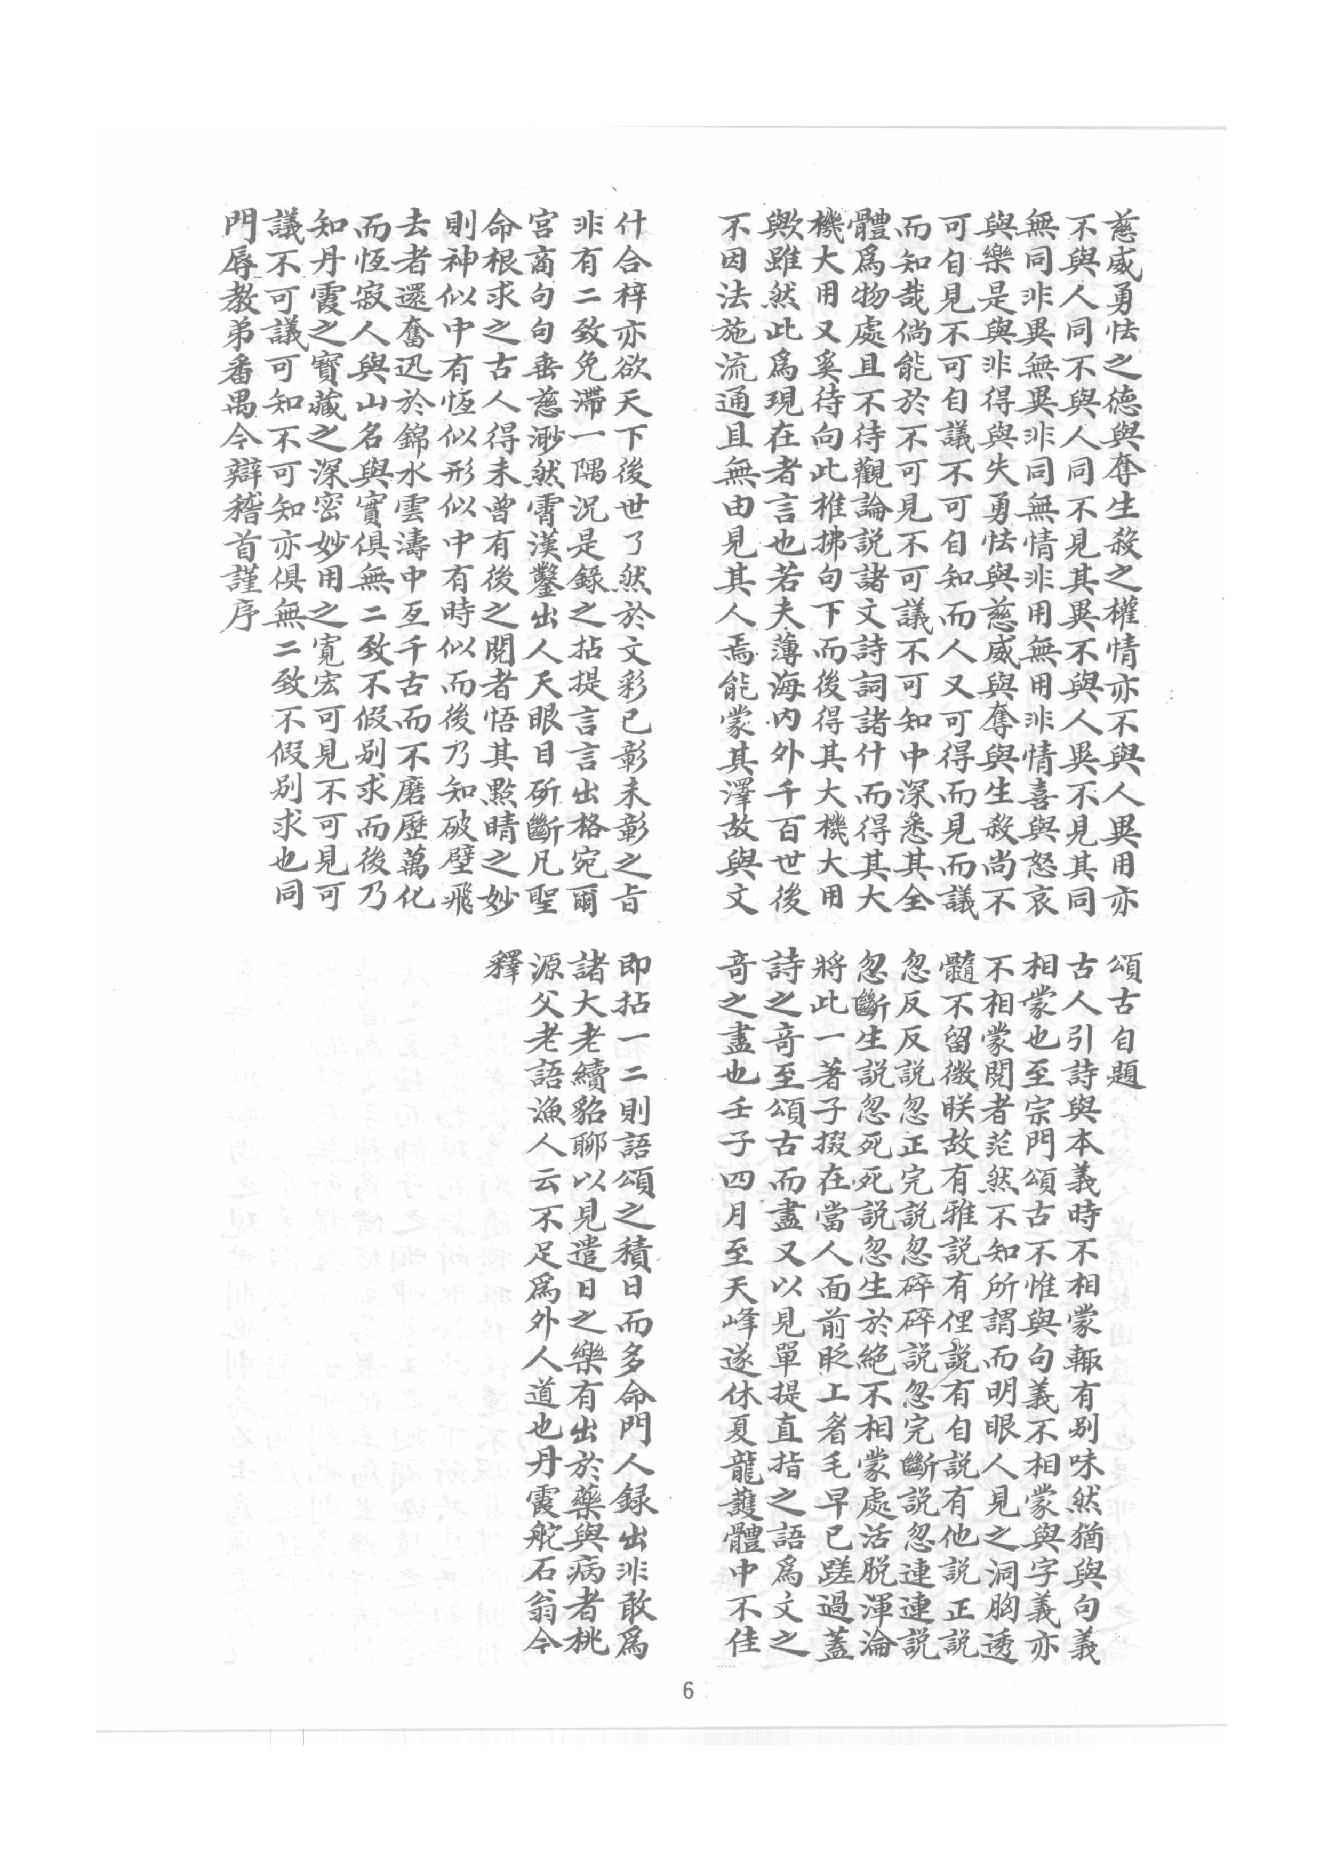 慈威勇怯之德與奪生殺之權情亦不與人異用亦
不與人同不與人同不見其異不與人異不見其同
無同非異無異非同無情非用無用非情喜與怒哀
與樂是與非得與失勇怯與慈威與奪與生殺尚不
可自見不可自議不可自知而人又可得而見而議
而知哉倘能於不可見不可議不可知中深悉其全
體爲物處且不待觀論說諸文詩詞諸什而得其大
機大用又奚待向此椎拂句下而後得其大機大用
歟雖然此爲現在者言也若夫薄海內外千百世後
不因法施流通且無由見其人焉能蒙其澤故與文
什合梓亦欲天下後世了然於文彩已彰未彰之旨
非有二致免滯一隅況是錄之拈提言言出格宛爾
宮商句句垂慈渺然霄漢鑿出人天眼目斫斷凡聖
命根求之古人得未曾有後之閱者悟其點睛之妙
則神似中有恆似形似中有時似而後乃知破壁飛
去者還奮迅於錦水雲濤中亙千古而不磨歷萬化
而恆寂人與山名與實俱無二致不假別求而後乃
知丹霞之寶藏之深密妙用之寬宏可見不可見可
議不可議可知不可知亦俱無二致不假別求也同
門辱教弟番禺今辯稽首謹序
頌古自題
古人引詩與本義時不相蒙輙有別味然猶與句義
相蒙也至宗門頌古不惟與句義不相蒙與字義亦
不相蒙閱者茫然不知所謂而明眼人見之洞胸透
髓不留微眹故有雅說有俚說有自說有他說正說
忽反反說忽正完說忽碎碎說忽完斷說忽連連說
忽斷生說忽死死說忽生於絕不相蒙處活脫渾淪
將此一著子掇在當人面前眨上眉毛早已蹉過蓋
詩之奇至頌古而盡又以見單提直指之語爲文之
奇之盡也壬子四月至天峰遂休夏龍護體中不佳
即拈一二則語頌之積日而多命門人錄出非敢爲
諸大老續貂聊以見遣日之樂有出於藥與病者桃
源父老語漁人云不足爲外人道也丹霞舵石翁今
釋
6